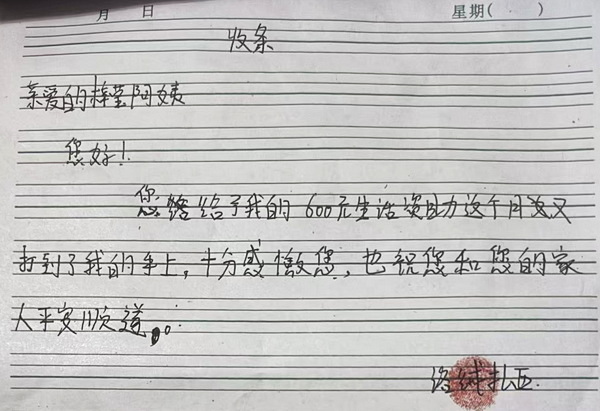 月 日 星期( )
收条
亲爱的梓莹阿姨
您好!
您给了我的600元生活资助这个月又
打到了我的手上,十分感激您,也祝您和您的家
人平安顺道。
洛绒扎西